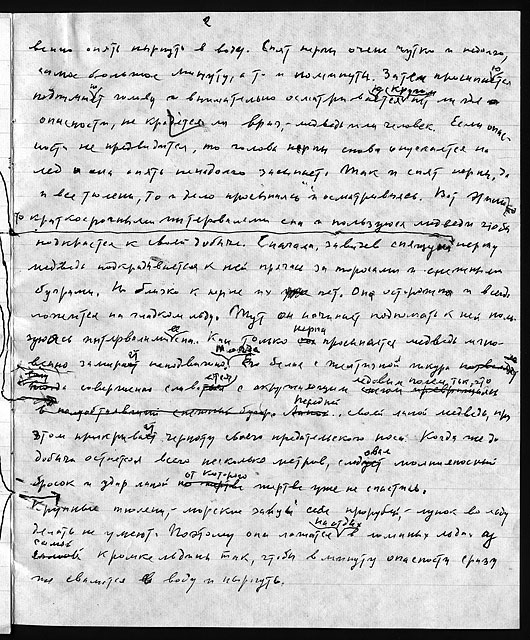 2
венно опять нырнуть в воду. Спят нерпы очень чутко и недолго,
самое большое минуту, а то и полминуты. Затем просыпаются
поднимают голову и внимательно осматриваются кругом нет ли где
опасности, не крадется ли враг, - медведь или человек. Если опас-
ность не предвидится, то голова нерпы снова опускается на
лед и она опять ненадолго засыпает. Так и спят нерпы, да
и все тюлени, то и дело просыпаясь и осматриваясь. Вот этими
то краткосрочными интервалами сна и пользуются медведи чтобы
подкрасться к своей добыче. Сначала, завидев спящую нерпу
медведь подкрадывается к ней прячась за торосами и снежными
буграми. Но близко к нерпе их нет. Она осторожна и всегда
ложится на гладком льду. Тут он начинает подползать к ней поль-
зуясь интервалами сна. Как только нерпа просыпается медведь мгно-
венно замирает неподвижно. его белая с желтизной шкура
тогда совершенно сливается с окружающим ледовым полем, так, что
в передней своей лапой медведь, при
этом прикрывает черноту своего предательского носа. Когда же до
добычи остается всего несколько метров, следует молниеносный
бросок и удар лапой от которого жертве уже не спастись.
Крупные тюлени, - морские зайцы себе прорубей, - лунок во льду
делать не умеют. Поэтому они ложатся на отдых в помины льдах
самой кромке льдины так, чтобы в минуту опасности сразу
же свалится в воду и нырнуть.